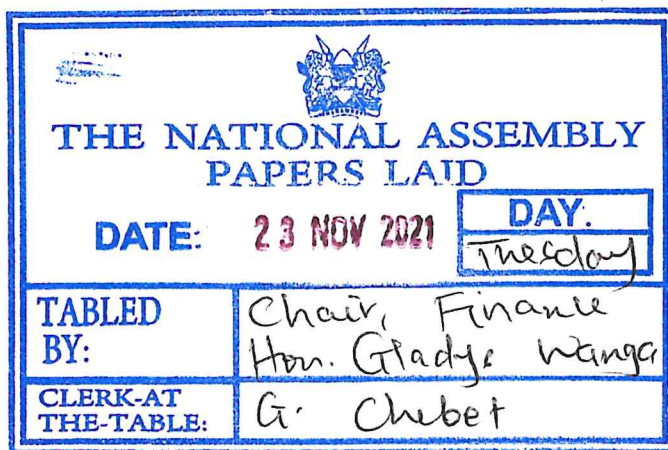 THE NATIONAL ASSEMBLY
PAPERS LAID
DATE: 23 NOV 2021
DAY.
Tuesday
TABLED BY:
Chair, Finance
Hon. Gladys Wanga
CLERK-AT THE-TABLE:
G. Chebet